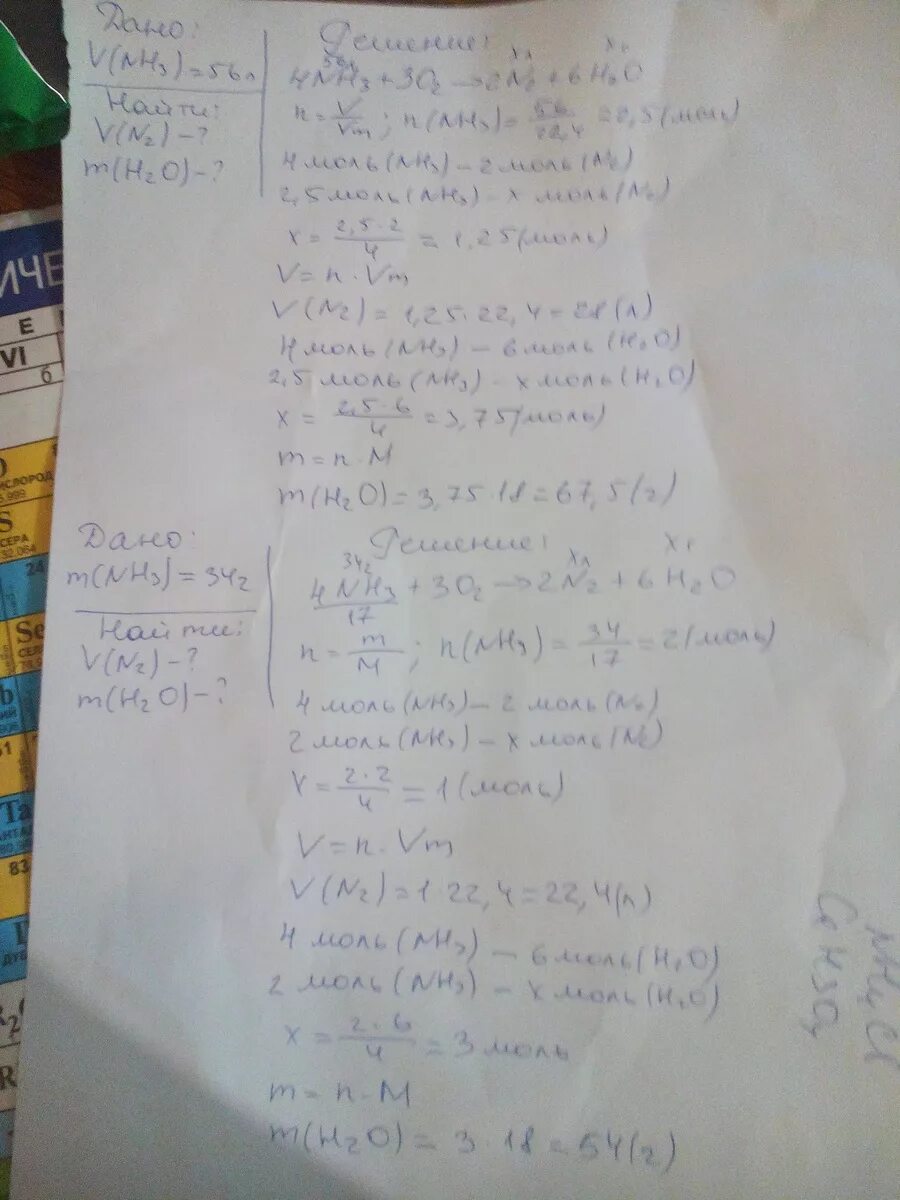 Дано:
V(NH3)=56л
Найти:
V(N2)-?
m(H2O)-?
Решение:
56л Xл Xг
4NH3+3O2→2N2+6H2O
n=V/Vm; n(NH3)=56/22,4=2,5(моль)
4 моль(NH3)-2 моль(N2)
2,5 моль(NH3)-x моль(N2)
x=2,5·2/4=1,25(моль)
V=n·Vm
V(N2)=1,25·22,4=28(л)
4 моль(NH3)-6 моль(H2O)
2,5 моль(NH3)-x моль(H2O)
x=2,5·6/4=3,75(моль)
m=n·M
m(H2O)=3,75·18=67,5(г)
Дано:
m(NH3)=34г
Найти:
V(N2)-?
m(H2O)-?
Решение:
34г Xл Xг
4NH3+3O2→2N2+6H2O
17
n=m/M; n(NH3)=34/17=2(моль)
4 моль(NH3)-2 моль(N2)
2 моль(NH3)-x моль(N2)
x=2·2/4=1(моль)
V=n·Vm
V(N2)=1·22,4=22,4(л)
4 моль(NH3)-6 моль(H2O)
2 моль(NH3)-x моль(H2O)
x=2·6/4=3 моль
m=n·M
m(H2O)=3·18=54(г)
NH4Cl
ИЧЕ
E
VI
6
ИСЛОРОД
5,999
S
СЕРА
32,064
24
Se
СЕЛ
79,9
b
51
Ta
83
ДУБ
R